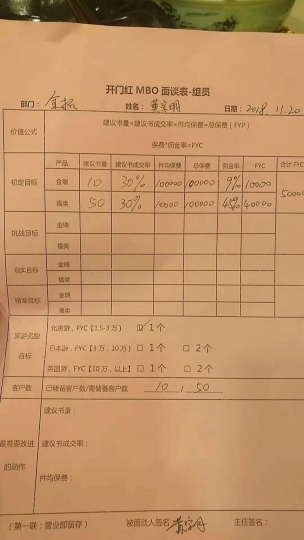 开门红 MBO 面谈表-组员
部门： 姓名： 日期：2018.11.20
价值公式
建议书量×建议书成交率×件均保费=总保费（FYP）
保费*佣金率=FYC
产品 建议书量 建议书成交率 件均保费 总保费 佣金率 FYC 合计FYC
初定目标
金瑞 10 30% 10000 100000 9% 10000
福类 50 30% 10000 40000
50000
挑战目标
金瑞
福类
现实目标
金瑞
福类
精准目标
金瑞
福类
旅游奖励
目标
北京游，FYC【1.5-3万】 ☑1个
日本游，FYC【3万，10万】 □ 1个 □ 2个
英国游，FYC【20万，以上】 □ 1个 □ 2个
客户数
已储备客户数/需储备客户数 10，50
最需要改进
的动作
建议书量：
建议书成交率：
件均保费：
（第一联：营业部留存） 被面谈人签名： 主任签名：